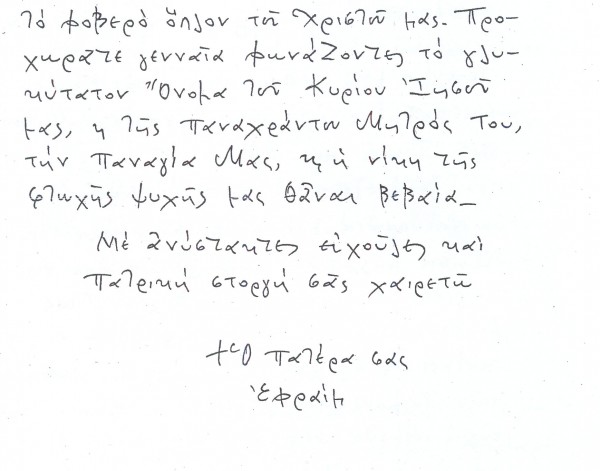 τό φοβερό ὅπλον τοῦ Χριστοῦ μας. Προ-
χωρᾶτε γενναῖα φωνάζοντες τό γλυ-
κύτατον Ὄνομα τοῦ Κυρίου Ἰησοῦ
μας, κ τῆς Παναχράντου Μητρός Του,
τήν Παναγία Μας, κ ἡ νίκη τῆς
φτωχῆς ψυχῆς μας θἆναι βεβαία_
Μέ ἀνύστακτες εὐχοῦλες καί
πατρική στοργή σᾶς χαιρετῶ
+ Ὁ πατέρα σας
Ἐφραίμ